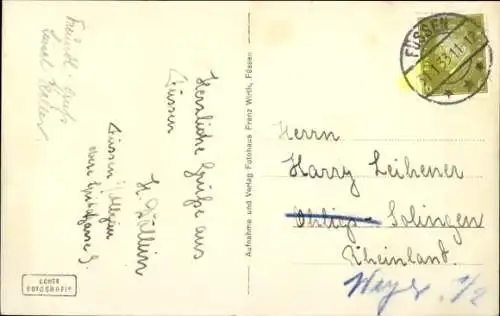 Freundl. Gruß
Herzliche Grüße aus
Füssen
H.
Füssen
Aufnahme und Verlag Fotohaus Franz Wirth, Füssen
ECHTE
FOTOGRAFIE
FÜSSEN
33.11-12
Herrn
Harry Leihener
Ohligs- Solingen
Rheinland
Weyer 1/2